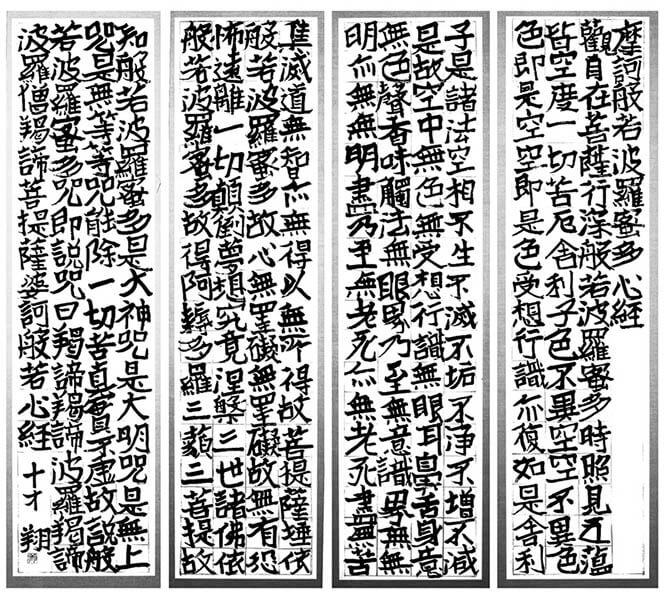 摩訶般若波羅蜜多心経
觀自在菩薩行深般若波羅蜜多時照見五蘊
皆空度一切苦厄舎利子色不異空空不異色
色即是空空即是色受想行識亦復如是舎利
子是諸法空相不生不滅不垢不浄不増不減
是故空中無色無受想行識無眼耳鼻舌身意
無色聲香味觸法無眼界乃至無意識界無無
明亦無無明盡乃至無老死亦無老死盡無苦
集滅道無智亦無得以無所得故菩提薩埵依
般若波羅蜜多故心無罣礙無罣礙故無有恐
怖遠離一切顛倒夢想究竟涅槃三世諸佛依
般若波羅蜜多故得阿耨多羅三藐三菩提故
知般若波羅蜜多是大神咒是大明咒是無上
咒是無等等咒能除一切苦真實不虚故説般
若波羅蜜多咒即説咒曰羯諦羯諦波羅羯諦
波羅僧羯諦菩提薩婆訶般若心経 十才 翔